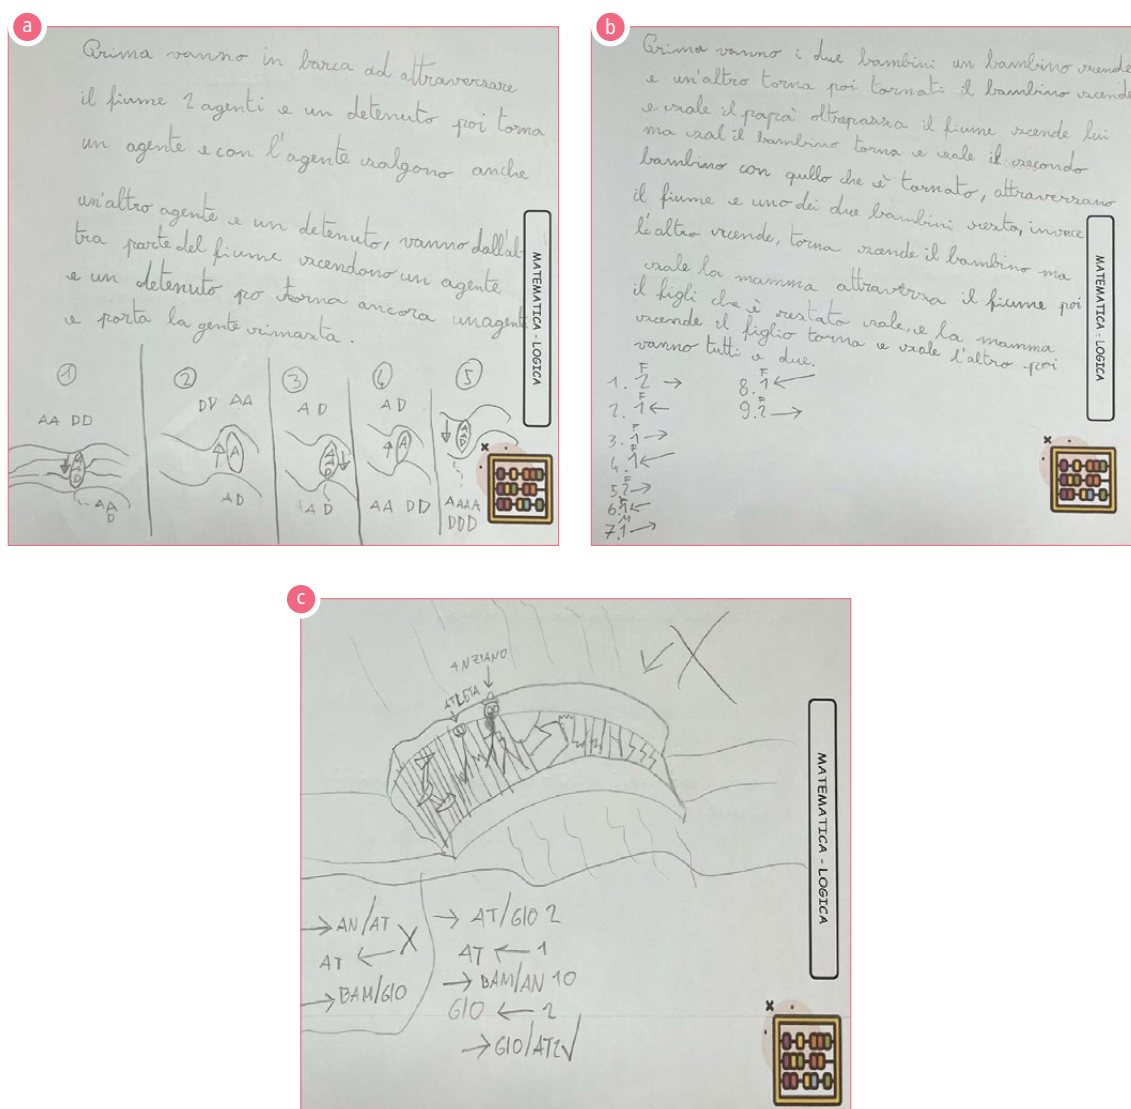 a
Prima vanno in barca ad attraversare
il fiume 2 agenti e un detenuto poi torna
un agente e con l'agente salgono anche
un'altro agente e un detenuto, vanno dall'al
tra parte del fiume scendono un agente
e un detenuto po torna ancora unagente
e porta la gente rimasta.
MATEMATICA - LOGICA
1 2 3 4 5
AA DD
DD AA
A D
A D
A
A
D
A
A
A
D
A
A
A
D
A
A
D
A D
A D
AA DD
AAAA
DDD
b
Prima vanno i due bambini un bambino scende
e un'altro torna poi tornati il bambino scende
e sale il papà oltrepassa il fiume scende lui
ma sal il bambino torna e sale il secondo
bambino con qullo che è tornato, attraversano
il fiume e uno dei due bambini resta, invece
l'altro scende, torna scende il bambino ma
sale la mamma attraversa il fiume poi
il figli che è restato sale, e la mamma
scende il figlio torna e sale l'altro poi
vanno tutti e due.
MATEMATICA - LOGICA
F
1. 2 →
F
2. 1 ←
F
3. 1 →
4. 1 ←
F
5. 2 →
6. 1 ←
M
7. 1 →
F
8. 1 ←
F
9. 2 →
c
ANZIANO
ATLETA
X
MATEMATICA - LOGICA
→ AN/AT
AT ← X
→ BAM/GIO
→ AT/GIO 2
AT ← 1
→ BAM/AN 10
GIO ← 2
→ GIO/AT2 √